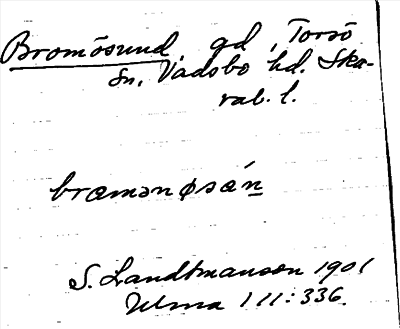 Bromösund, gd, Torsö
sn, Vadsbo hd. Ska-
rab. l.
bramanøsán
S. Landtmanson 1901
Ulma 111:336.